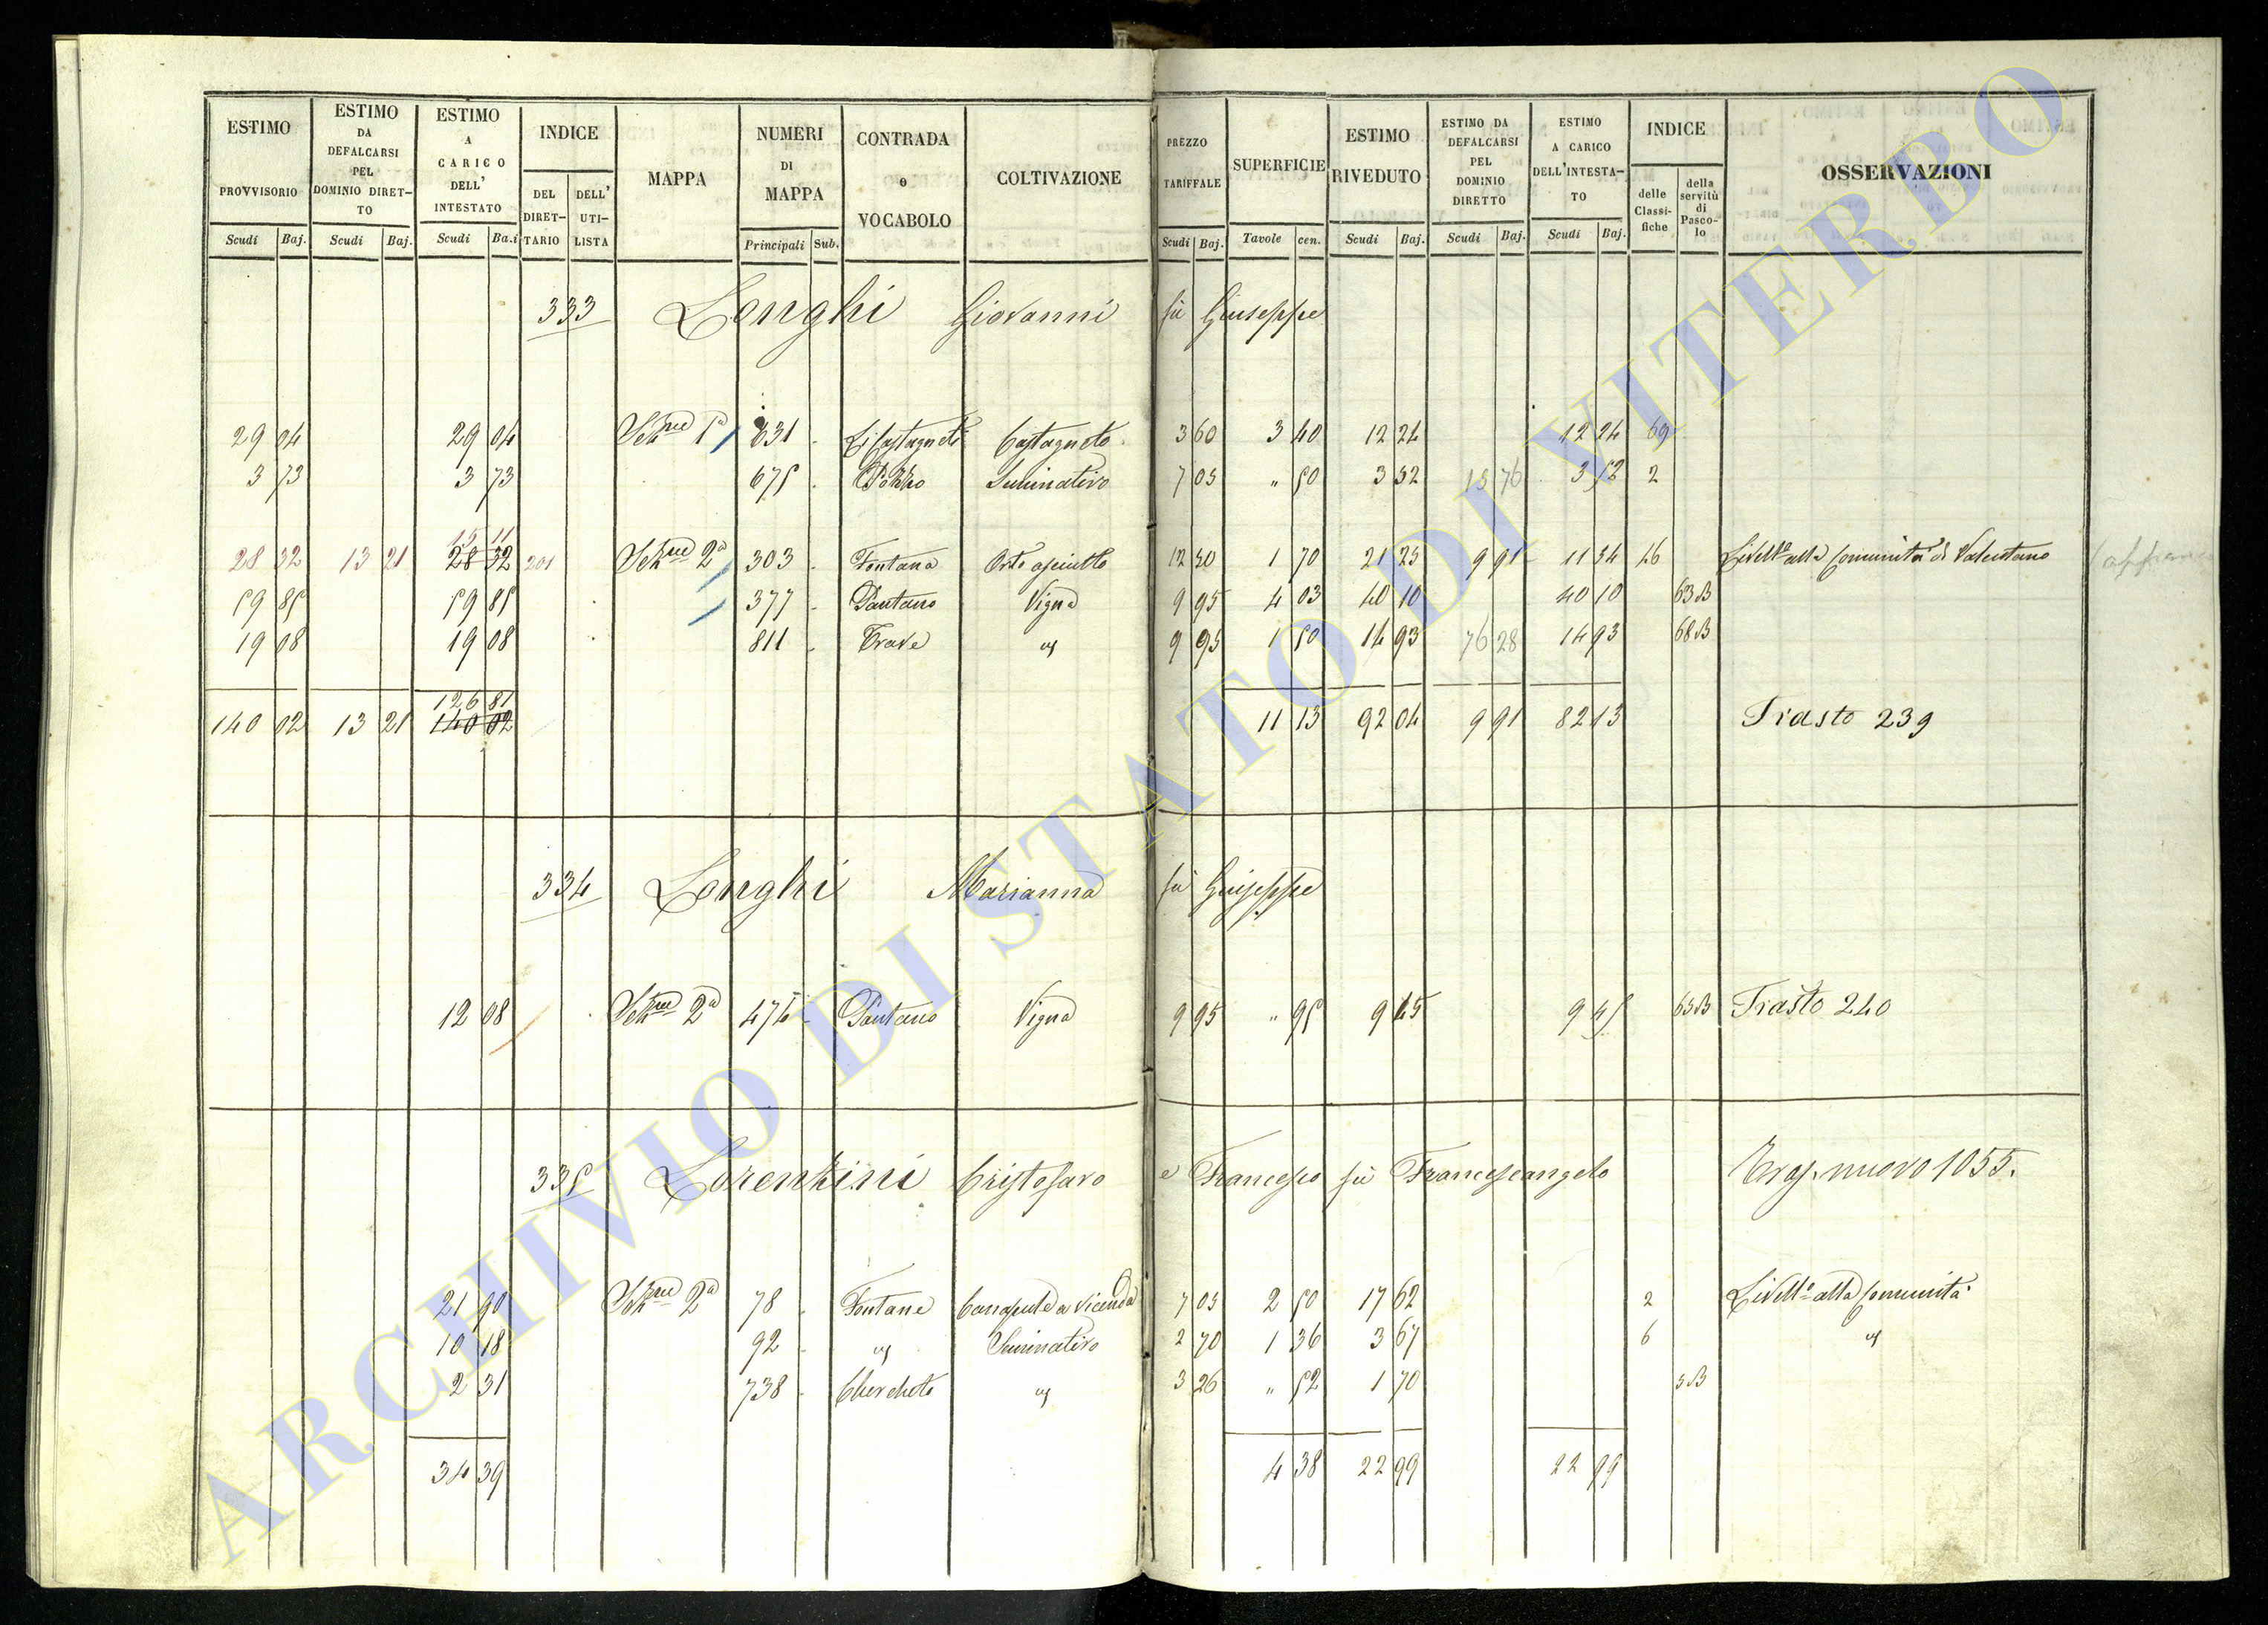 ESTIMO PROVVISORIO Scudi Baj.
ESTIMO DA DEFALCARSI PEL DOMINIO DIRET-TO Scudi Baj.
ESTIMO A CARICO DELL' INTESTATO Scudi Ba.i
INDICE DEL DIRET-TARIO DELL' UTI-LISTA
MAPPA
NUMERI DI MAPPA Principali Sub.
CONTRADA o VOCABOLO
COLTIVAZIONE
PREZZO TARIFFALE Scudi Baj.
SUPERFICIE Tavole cen.
ESTIMO RIVEDUTO Scudi Baj.
ESTIMO DA DEFALCARSI PEL DOMINIO DIRETTO Scudi Baj.
ESTIMO A CARICO DELL'INTESTA-TO Scudi Baj.
INDICE delle Classi-fiche della servitù di Pasco-lo
OSSERVAZIONI
333 Longhi Giovanni fù Giuseppe
29 04 29 04 Sez.ne 1a 631 Li Castagneti Castagneto 3 60 3 40 12 24 12 24 69
3 73 3 73 675 Pozzo Seminativo 7 05 " 50 3 52 15 76 3 52 2
15 11
28 32 13 21 28 32 201 Sez.ne 2a 303 Fontana Orto asciutto 12 50 1 70 21 25 9 91 11 34 46 Livell.o alla Comunità di Valentano
59 85 59 85 377 Pantano Vigna 9 95 4 03 40 10 40 10 63 B
19 08 19 08 811 Trave " 9 95 1 50 14 93 76 28 14 93 68 B
126 81
140 02 13 21 140 02 11 13 92 04 9 91 82 13 Trasto 239
334 Longhi Marianna fù Giuseppe
12 08 Sez.ne 2a 474 Pantano Vigna 9 95 " 95 9 45 9 45 63 B Trasto 240
335 Lorenzini Cristofaro e Francesco fù Francescangelo Tras. nuovo 1055.
21 90 Sez.ne 2a 78 Fontane Canapule a vicenda 7 05 2 50 17 62 2 Livell.o alla Comunità
10 18 92 " Seminativo 2 70 1 36 3 67 6 "
2 31 738 " 3 26 " 52 1 70 5 B
34 39 4 38 22 99 22 99
ARCHIVIO DI STATO DI VITERBO